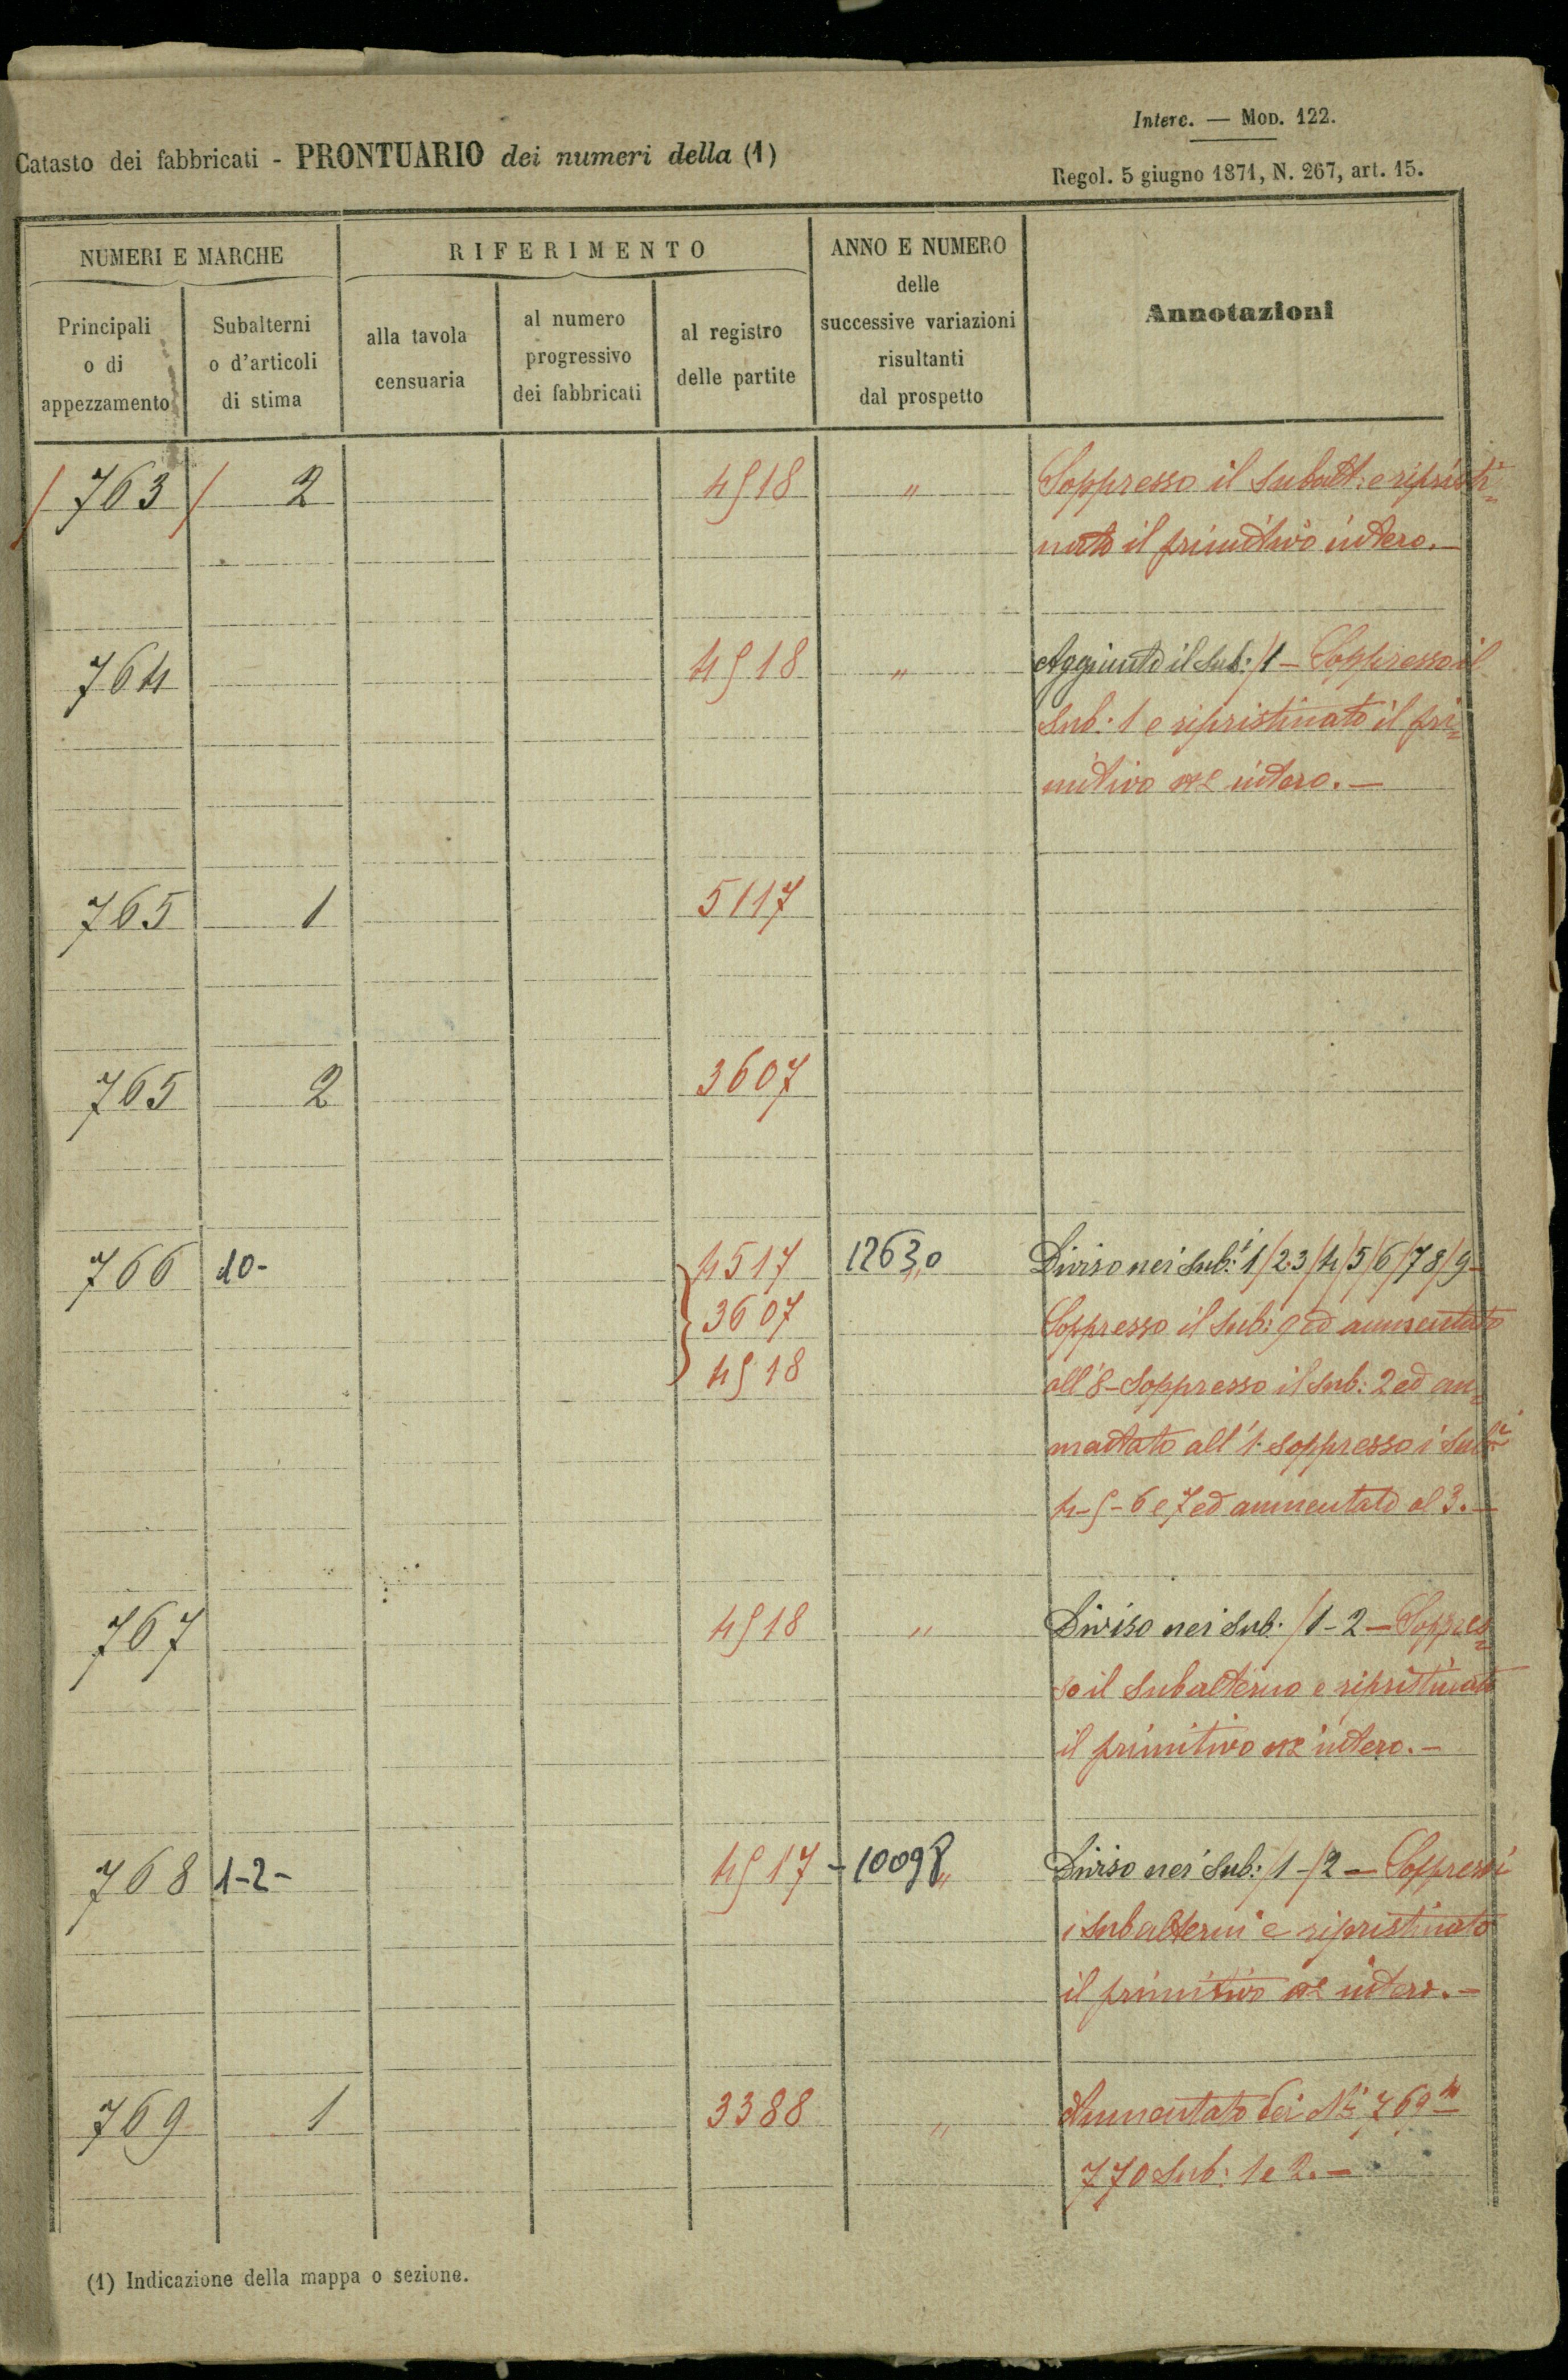 Interc. — Mod. 122.
Catasto dei fabbricati - PRONTUARIO dei numeri della (1)
Regol. 5 giugno 1871, N. 267, art. 15.
NUMERI E MARCHE
RIFERIMENTO
ANNO E NUMERO
delle
successive variazioni
risultanti
dal prospetto
Annotazioni
Principali
o di
appezzamento
Subalterni
o d'articoli
di stima
alla tavola
censuaria
al numero
progressivo
dei fabbricati
al registro
delle partite
/ 763 / 2 4518 " Soppresso il Subalt: e ripristi=
nato il primitivo intero.—
764 4518 " Aggiunto il Sub: /1 — Soppresso il
Sub: 1 e ripristinato il pri=
mitivo nº intero.—
765 1 5117
765 2 3607
766 10- 4517 12630 Diviso nei Sub:i 1/2.3/4/5/6/7 8/9-
3607 Soppresso il Sub: 9 ed aumentato
4518 all'8- Soppresso il Sub: 2 ed au=
mentato all'1. Soppresso i Subi
4-5-6 e 7 ed aumentato al 3.—
767 4518 " Diviso nei Sub: /1-2 — Soppres=
so il Subalterno e ripristinato
il primitivo nº intero.—
768 1-2- 4517 - 10098 " Diviso nei Sub: /1-/2 — Soppressi
i Subalterni e ripristinato
il primitivo nº intero.—
769 1 3388 " Aumentato dei Ni 769
770 Sub: 1 e 2.—
(1) Indicazione della mappa o sezione.